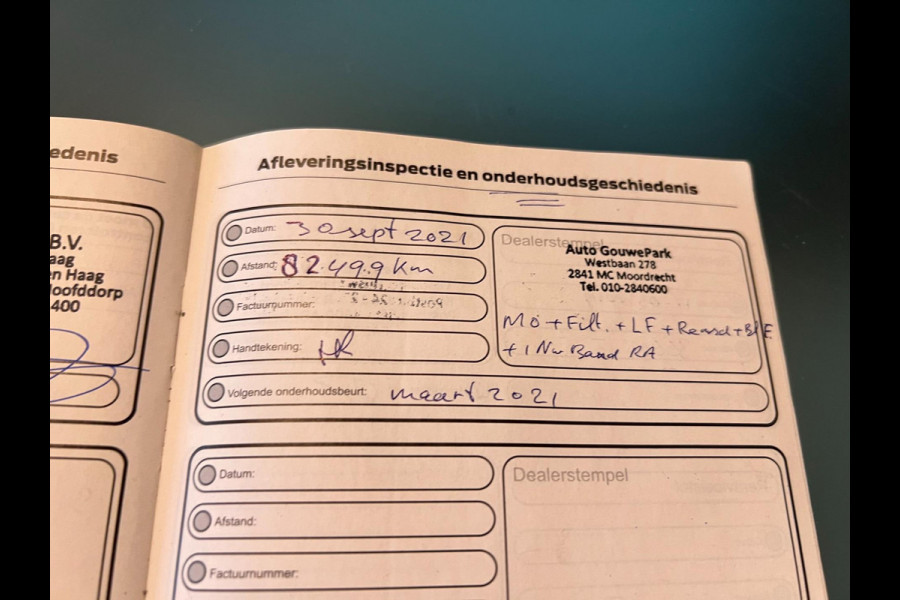 edenis
B.V.
aag
n Haag
Hoofddorp
400
Afleveringsinspectie en onderhoudsgeschiedenis
Datum: 30 sept 2021
Afstand: 82.499 km
Factuurnummer:
Handtekening:
Volgende onderhoudsbeurt: maart 2021
Dealerstempel
Auto GouwePark
Westbaan 278
2841 MC Moordrecht
Tel. 010-2840600
Mo + Filt. + LF +
+ 1 Nw Band RA
Datum:
Afstand:
Factuurnummer:
Dealerstempel